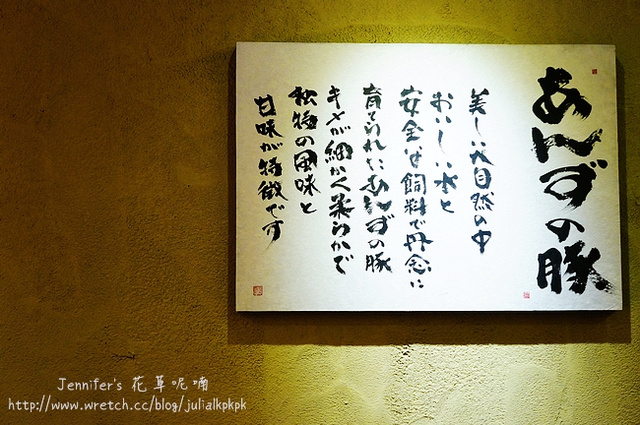 あんずの豚
美しい大自然の中
おいしい水と
安全な飼料で丹念に
育てられたあんずの豚
キメが細かく柔らかで
独特の風味と
甘味が特徴です
Jennifer's 花草呢喃
http://www.wretch.cc/blog/julialkpkpk